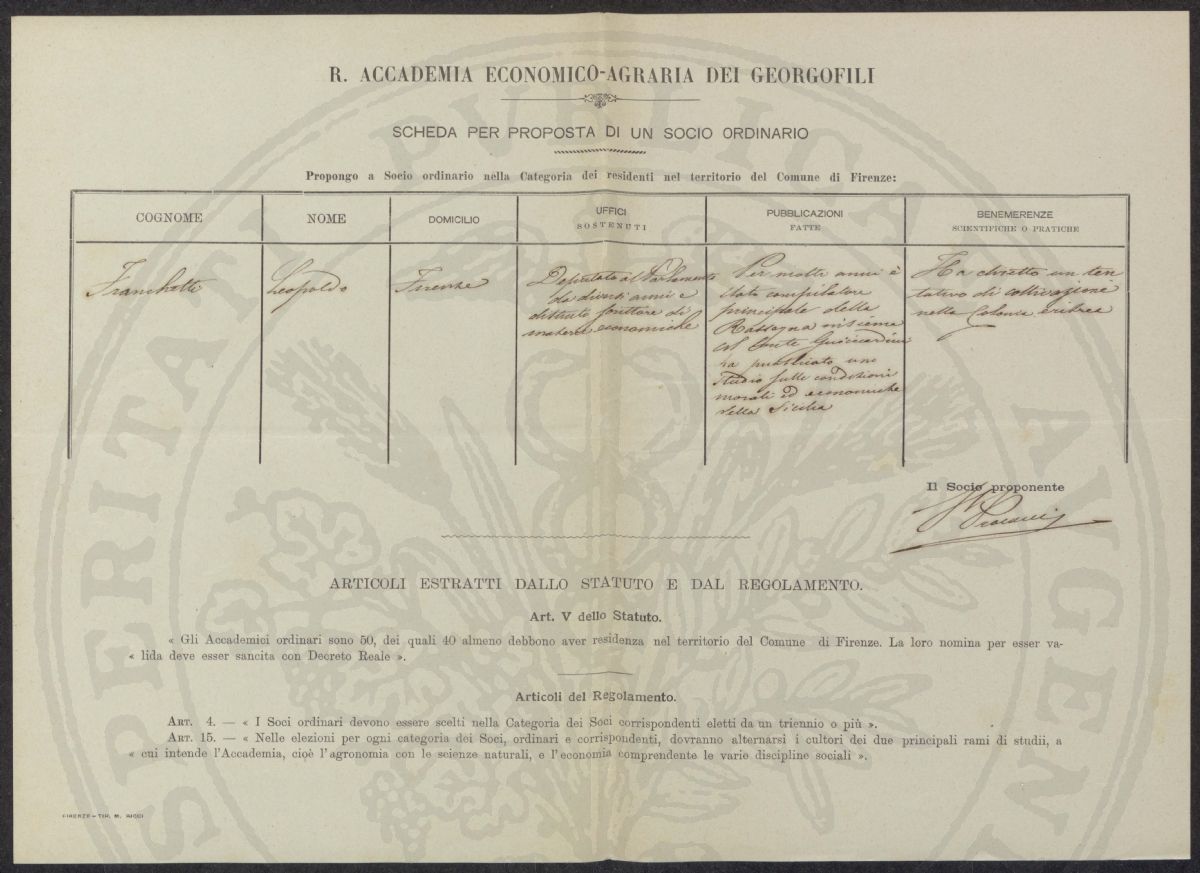 R. ACCADEMIA ECONOMICO-AGRARIA DEI GEORGOFILI
SCHEDA PER PROPOSTA DI UN SOCIO ORDINARIO
Propongo a Socio ordinario nella Categoria dei residenti nel territorio del Comune di Firenze:
COGNOME
NOME
DOMICILIO
UFFICI
SOSTENUTI
PUBBLICAZIONI
FATTE
BENEMERENZE
SCIENTIFICHE O PRATICHE
Franchetti
Leopoldo
Firenze
Deputato al Parlamento
da diversi anni e
distinto scrittore di
materie economiche
Per molti anni è
stato compilatore
principale della
Rassegna insieme
col Conte Guicciardini
ha pubblicato uno
studio sulle condizioni
morali ed economiche
della Sicilia
Ha diretto un ten
tativo di coltivazione
nella Colonia eritrea
Il Socio proponente
ARTICOLI ESTRATTI DALLO STATUTO E DAL REGOLAMENTO.
Art. V dello Statuto.
« Gli Accademici ordinari sono 50, dei quali 40 almeno debbono aver residenza nel territorio del Comune di Firenze. La loro nomina per esser va-
« lida deve esser sancita con Decreto Reale ».
Articoli del Regolamento.
ART. 4. — « I Soci ordinari devono essere scelti nella Categoria dei Soci corrispondenti eletti da un triennio o più ».
ART. 15. — « Nelle elezioni per ogni categoria dei Soci, ordinari e corrispondenti, dovranno alternarsi i cultori dei due principali rami di studii, a
« cui intende l'Accademia, cioè l'agronomia con le scienze naturali, e l'economia comprendente le varie discipline sociali ».
FIRENZE - TIP. M. RICCI